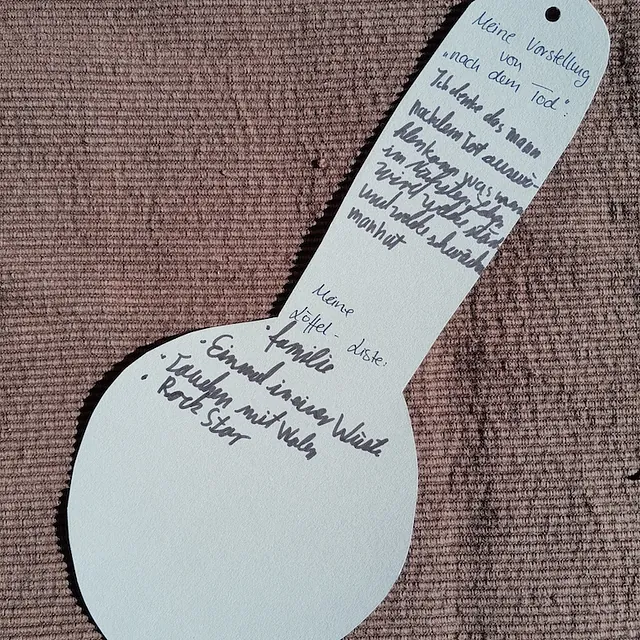 Meine Vorstellung
von
„nach dem Tod":
Ich denke das mann
nachdem Tot aussuch-
en kann was man
im nächsten Leben
wird welche stär
und welche schwäch
man hat
Meine
Löffel-Liste:
· familie
· Einmal in einer Wüste
· Tauchen mit Walen
· Rock Star